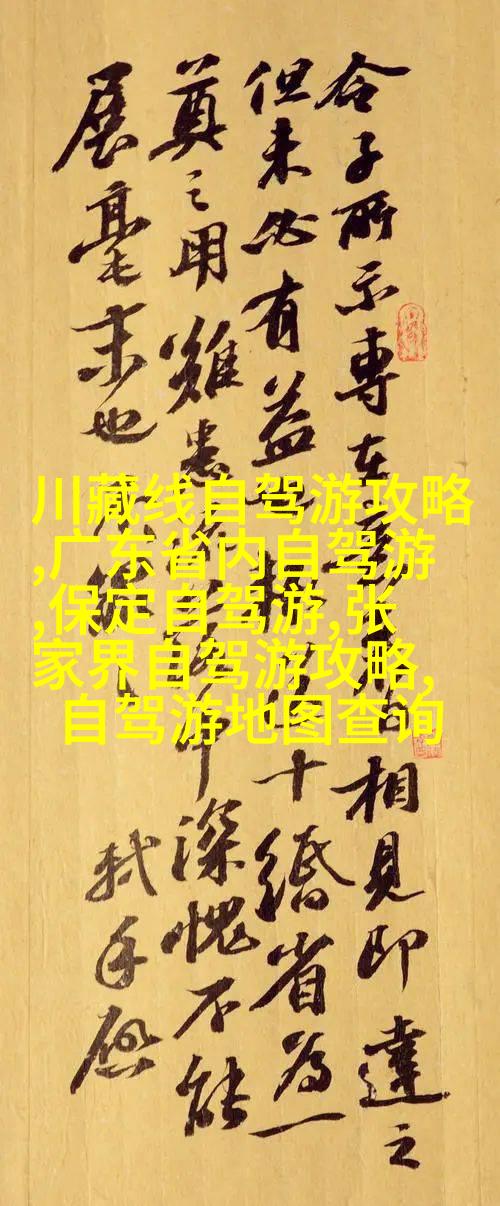 合子所示專在相見即達之
但未必有益十緡省為一
奠之用雖深愧不能
展毫末也
軾手啟
川藏线自驾游攻略
,广东省内自驾游
,保定自驾游,张
家界自驾游攻略,
自驾游地图查询